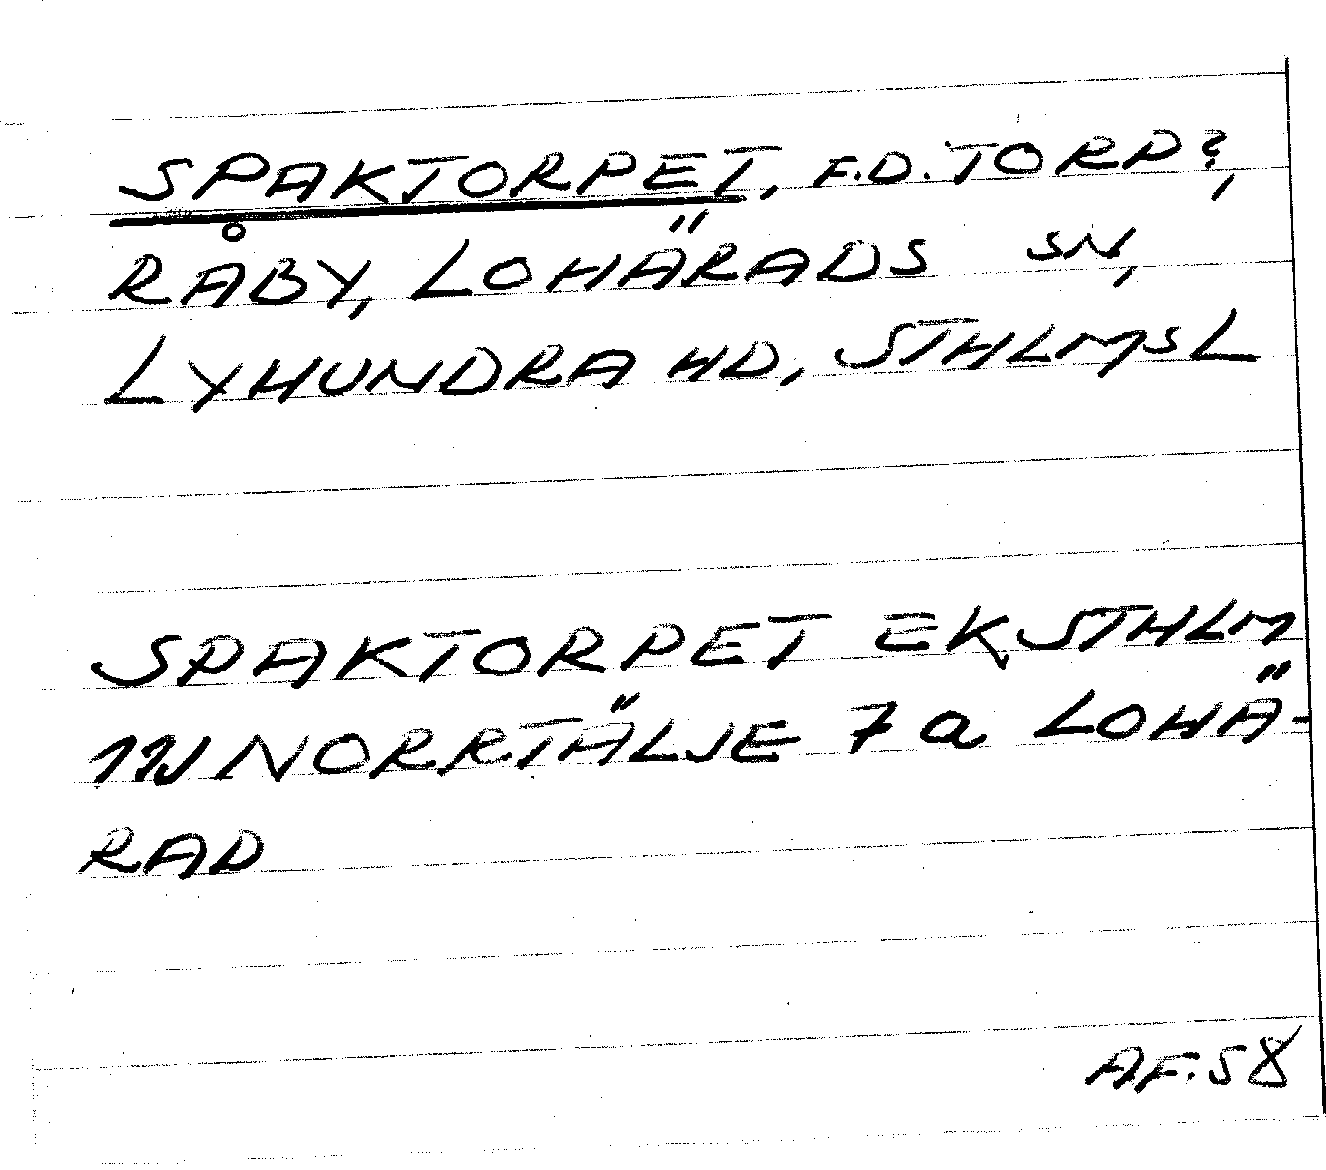 SPAKTORPET, F.D. TORP?,
RÅBY, LOHÄRADS SN,
LYHUNDRA HD, STHLMSL
SPAKTORPET EK, STHLM
11J NORRTÄLJE 7 a LOHÄ-
RAD
A.F. 58